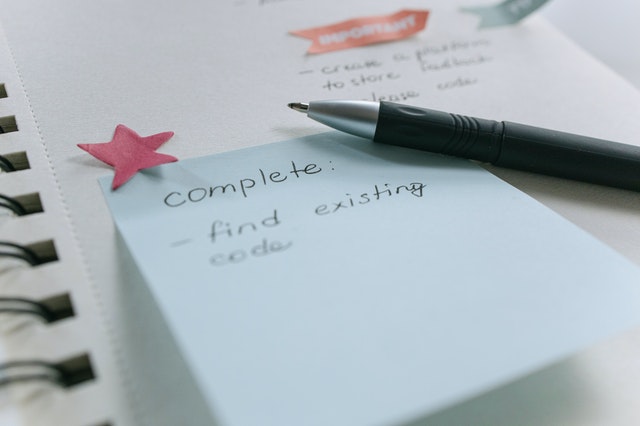 IMPORTANT
- create a platform
to store feedback
code
complete:
- find existing
code